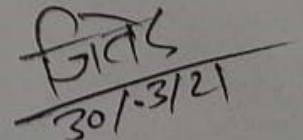 जितेंद्र
30/-3/21